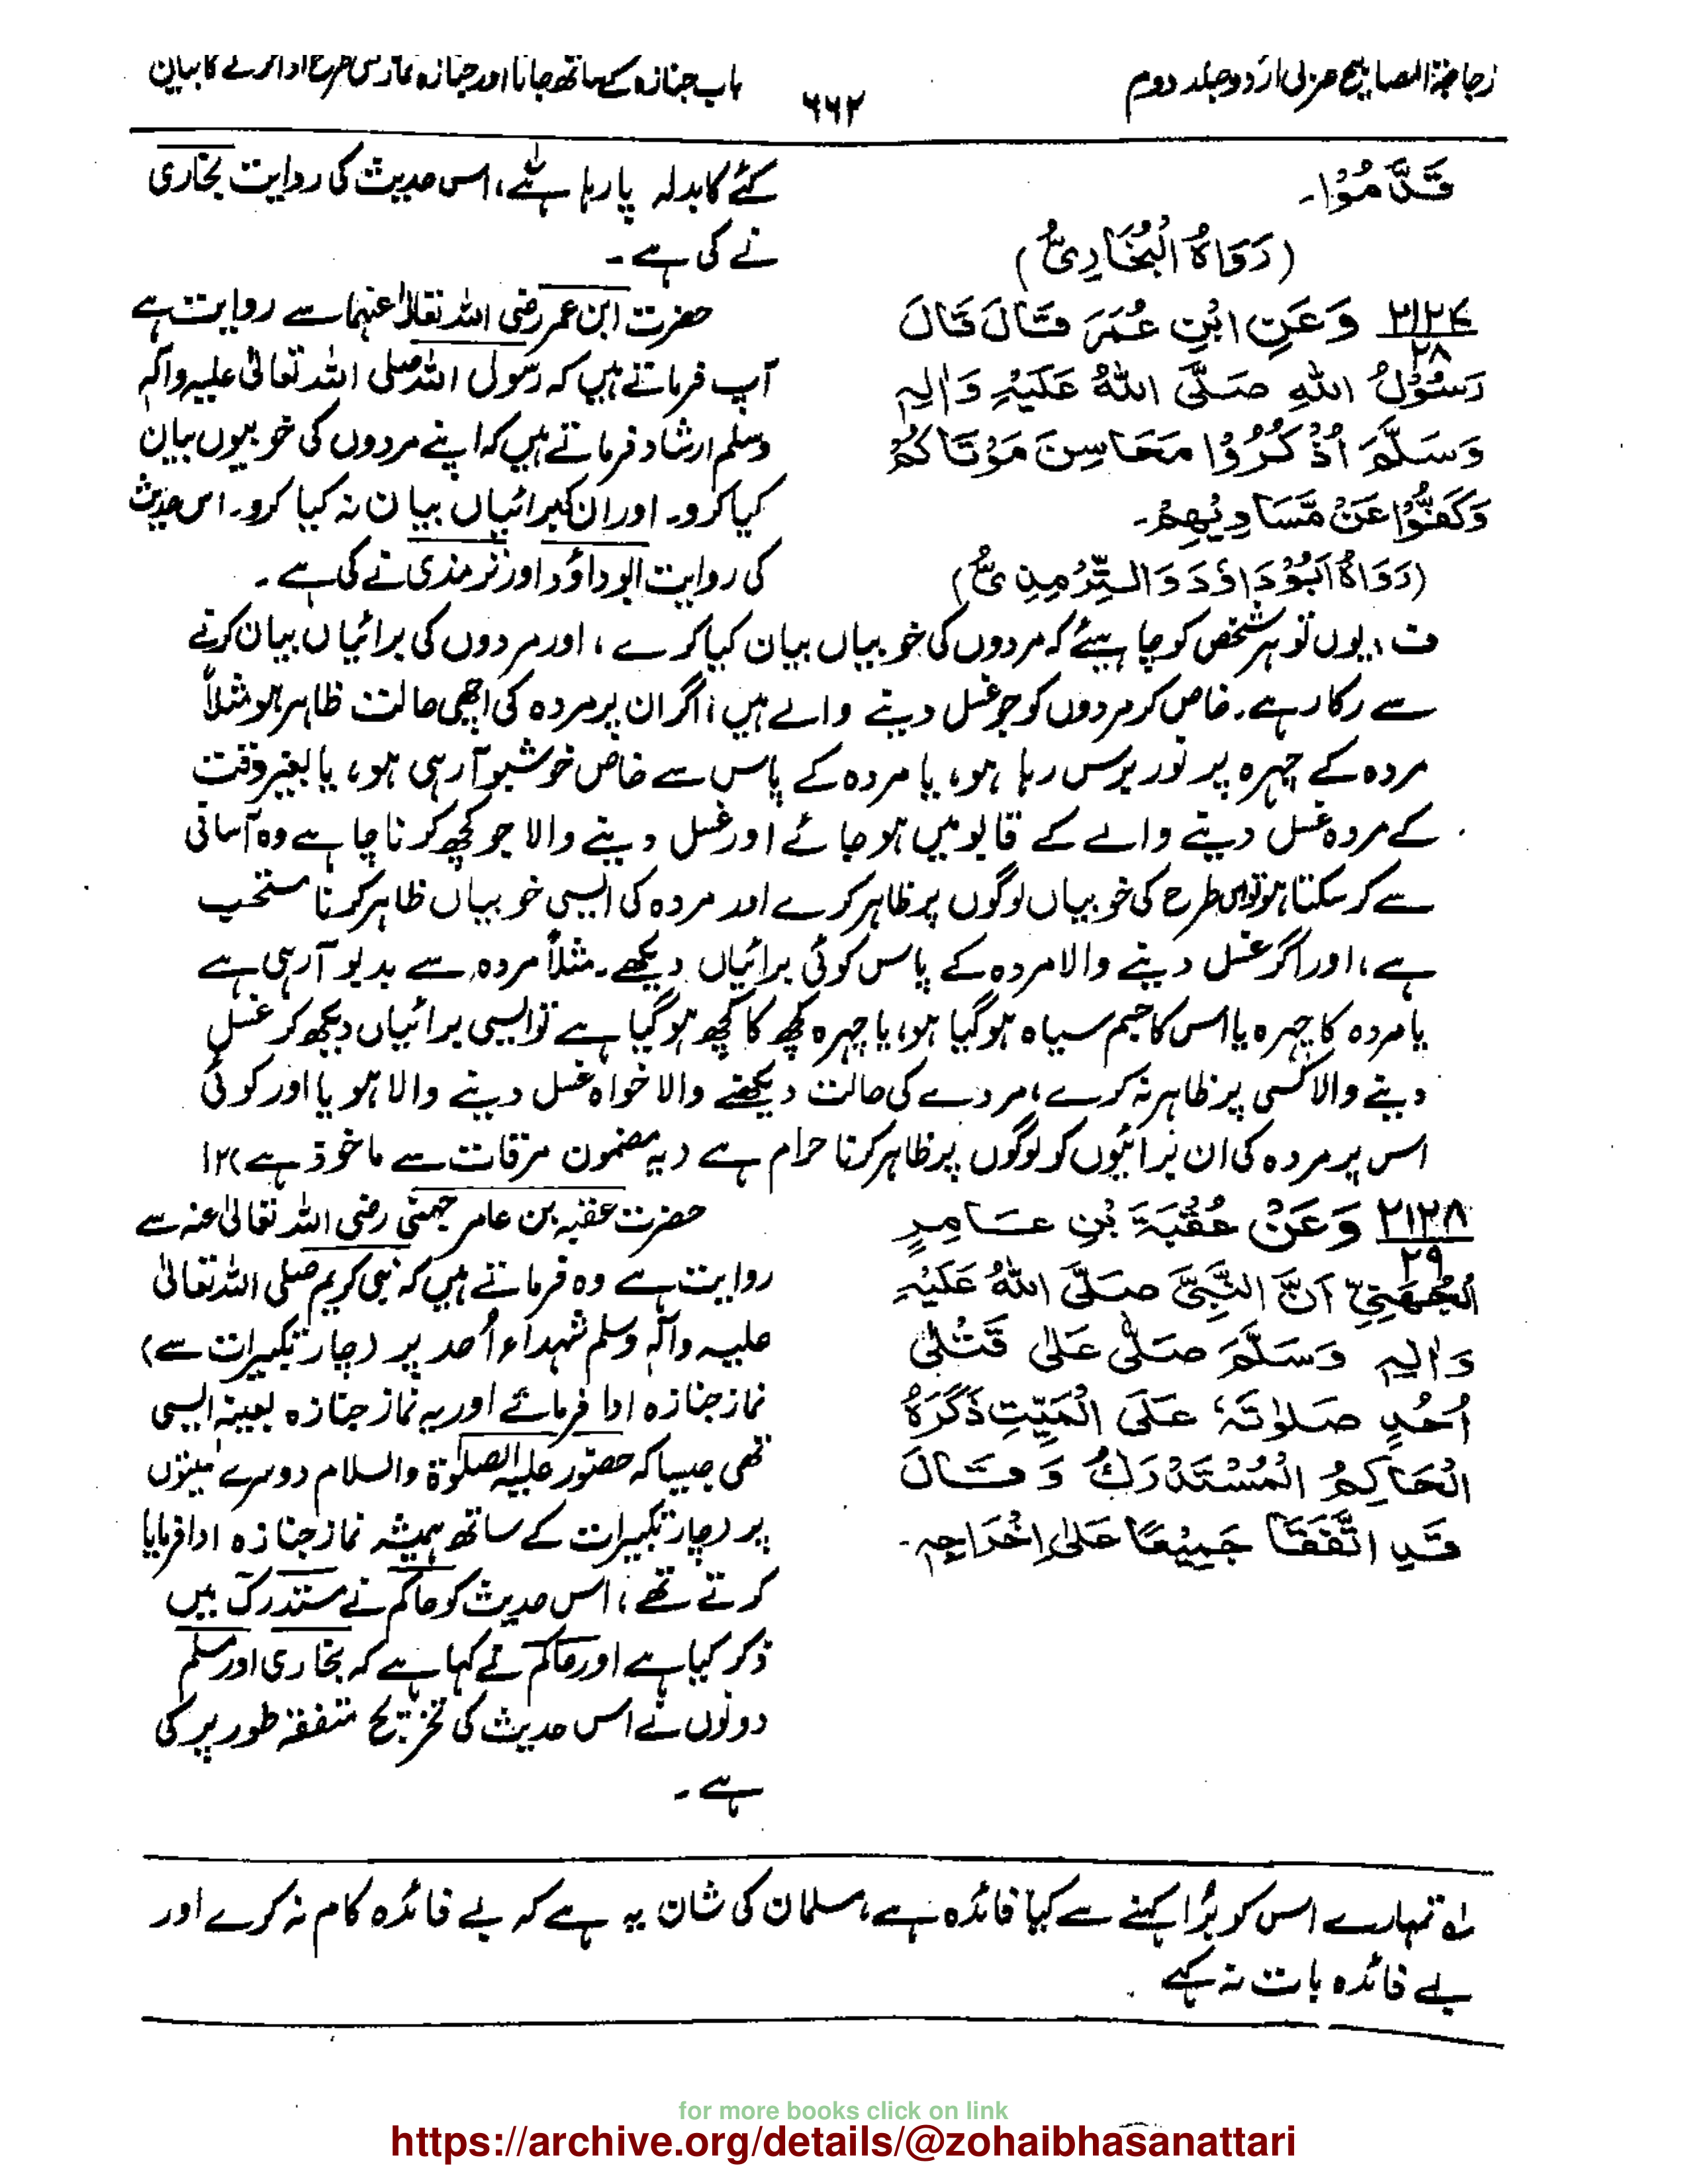 زجاجۃ المصابیح عربی اردو جلد دوم
۶۶۲
باب جنازہ کے ساتھ جانا اور جنازہ نماز کس طرح ادا کرنے کا بیان
قَدَّمُوْا۔
(رَوَاہُ الْبُخَارِیُّ)
۲۱۲۷
۲۸
وَعَنِ ابْنِ عُمَرَ قَالَ قَالَ
رَسُوْلُ اللّٰهِ صَلَّی اللّٰهُ عَلَیْہِ وَاٰلِہٖ
وَسَلَّمَ اُذْکُرُوْا مَحَاسِنَ مَوْتَاکُمْ
وَکَفُّوْا عَنْ مَّسَاوِیْھِمْ۔
(رَوَاہُ اَبُوْدَاؤدَ وَالتِّرْمِذِیُّ)
کئے کا بدلہ پا رہا ہے ۱ے، اس حدیث کی روایت بخاری
نے کی ہے۔
حضرت ابن عمر رضی اللہ تعالیٰ عنہما سے روایت ہے
آپ فرماتے ہیں کہ رسول اللہ صلی اللہ تعالیٰ علیہ وآلہٖ
وسلم ارشاد فرماتے ہیں کہ اپنے مردوں کی خوبیوں بیان
کیا کرو۔ اور ان کی برائیاں بیان نہ کیا کرو۔ اس حدیث
کی روایت ابوداؤد اور ترمذی نے کی ہے۔
ف: یوں تو ہر شخص کو چاہیئے کہ مردوں کی خوبیاں بیان کیا کرے، اور مردوں کی برائیاں بیان کرنے
سے رکا رہے۔ خاص کر مردوں کو جو غسل دینے والے ہیں، اگر ان پر مردہ کی اچھی حالت ظاہر ہو مثلاً
مردہ کے چہرہ پر نور برس رہا ہو، یا مردہ کے پاس سے خاص خوشبو آرہی ہو، یا بغیر دقت
کے مردہ غسل دینے والے کے قابو میں ہو جائے اور غسل دینے والا جو کچھ کرنا چاہے وہ آسانی
سے کر سکتا ہو تو اس طرح کی خوبیاں لوگوں پر ظاہر کرے اور مردہ کی ایسی خوبیاں ظاہر کرنا مستحب
ہے، اور اگر غسل دینے والا مردہ کے پاس کوئی برائیاں دیکھے۔ مثلاً مردہ سے بدبو آرہی ہے
یا مردہ کا چہرہ یا اس کا جسم سیاہ ہو گیا ہو، یا چہرہ کچھ کا کچھ ہو گیا ہے تو ایسی برائیاں دیکھ کر غسل
دینے والا کسی پر ظاہر نہ کرے، مردے کی حالت دیکھنے والا خواہ غسل دینے والا ہو یا اور کوئی
اس پر مردہ کی ان برائیوں کو لوگوں پر ظاہر کرنا حرام ہے (یہ مضمون مرقات سے ماخوذ ہے) ۱۲
۲۱۲۸
۲۹
وَعَنْ عُقْبَۃَ بْنِ عَامِرٍ
الْجُھَنِیِّ اَنَّ النَّبِیَّ صَلَّی اللّٰهُ عَلَیْہِ
وَاٰلِہٖ وَسَلَّمَ صَلّٰی عَلٰی قَتْلٰی
اُحُدٍ صَلٰوتَہٗ عَلَی الْمَیِّتِ ذَکَرَہُ
الْحَاکِمُ الْمُسْتَدْرَکُ وَقَالَ
قَدِ اتَّفَقَا جَمِیْعًا عَلٰی اِخْرَاجِہٖ۔
حضرت عقبہ بن عامر جہنی رضی اللہ تعالیٰ عنہ سے
روایت ہے وہ فرماتے ہیں کہ نبی کریم صلی اللہ تعالیٰ
علیہ وآلہٖ وسلم شہداء اُحد پر (چار تکبیرات سے)
نماز جنازہ ادا فرمائے اور یہ نماز جنازہ بعینہ ایسی
تھی جیسا کہ حضور علیہ الصلوٰۃ والسلام دوسرے میتوں
پر (چار تکبیرات کے ساتھ ہمیشہ نماز جنازہ ادا فرمایا
کرتے تھے، اس حدیث کو حاکم نے مستدرک میں
ذکر کیا ہے اور حاکم نے کہا ہے کہ بخاری اور مسلم
دونوں نے اس حدیث کی تخریج متفقہ طور پر کی
ہے۔
۱ے تمہارے اس کو بُرا کہنے سے کیا فائدہ ہے، مسلمان کی شان یہ ہے کہ بے فائدہ کام نہ کرے اور
بے فائدہ بات نہ کہے
for more books click on link
https://archive.org/details/@zohaibhasanattari